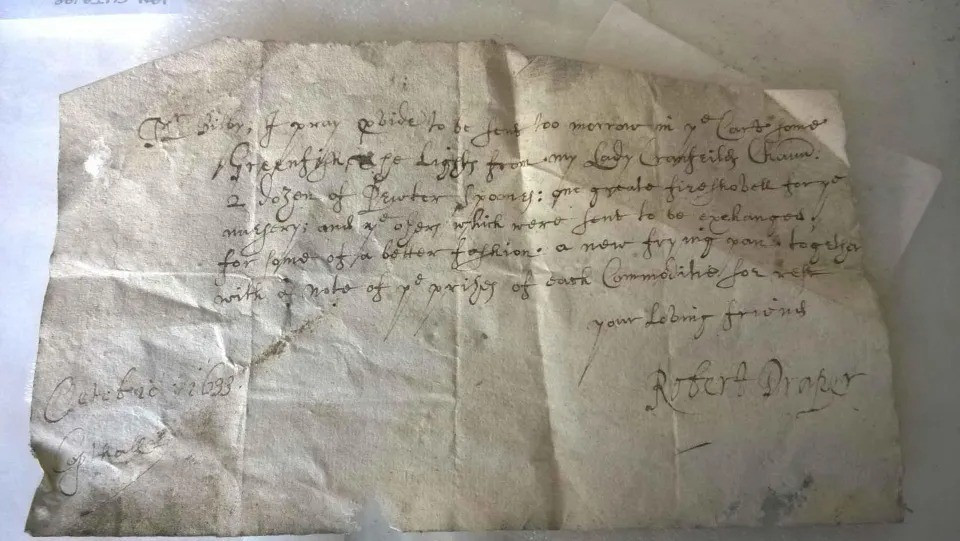 Mr Bilby, I pray pvide to be sent too morrow in ye Cart some
Greenfish, The Lights from my Lady Cranfeilds Cham:
2 dozen of Pewter spoones: one greate fireshovell for ye
nursery; and ye others which were sent to be exchanged
for some of a better fashion. a new frying pan together
with a note of ye prises of each Commoditie for rest
your loving friend
Robert Draper
Octobre 1633.
Copthall